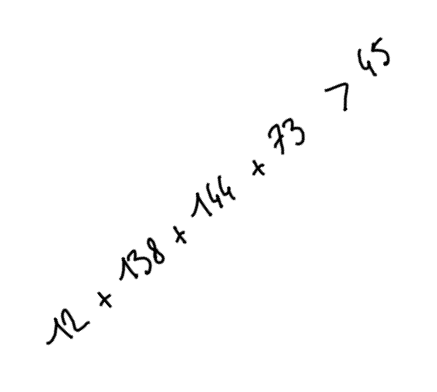 12 + 138 + 144 + 73 > 45